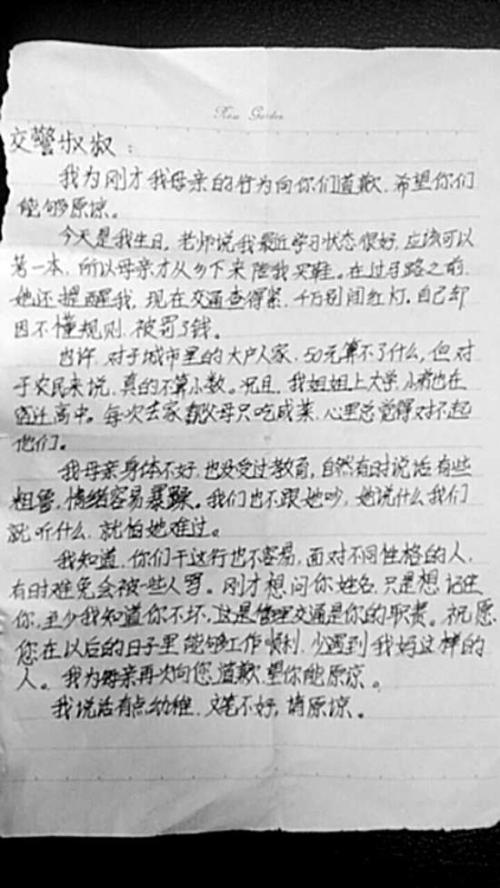 Rose Garden
交警叔叔：
我为刚才我母亲的行为向你们道歉,希望你们
能够原谅。
今天是我生日,老师说我最近学习状态很好,应该可以
第一本,所以母亲才从乡下来陪我买鞋。在过马路之前,
她还提醒我,现在交通查得紧,千万别闯红灯,自己却
因不懂规则,被罚了钱。
也许,对于城市里的大户人家,50元算不了什么,但对
于农民来说,真的不算小数。况且,我姐姐上大学,小弟也在
宿迁高中。每次去家都父母只吃咸菜,心里总觉得对不起
他们。
我母亲身体不好,也没受过教育,自然有时说话有些
粗鲁,情绪容易暴躁。我们也不跟她吵,她说什么我们
就听什么,就怕她难过。
我知道,你们干这行也不容易,面对不同性格的人,
有时难免会被一些人骂。刚才想问你姓名,只是想记住
你,至少我知道你不坏,这是管理交通是你的职责。祝愿
您在以后的日子里能够工作顺利,少遇到我妈这样的
人。我为母亲再次向您道歉,望你能原谅。
我说话有点幼稚,文笔不好,请原谅。